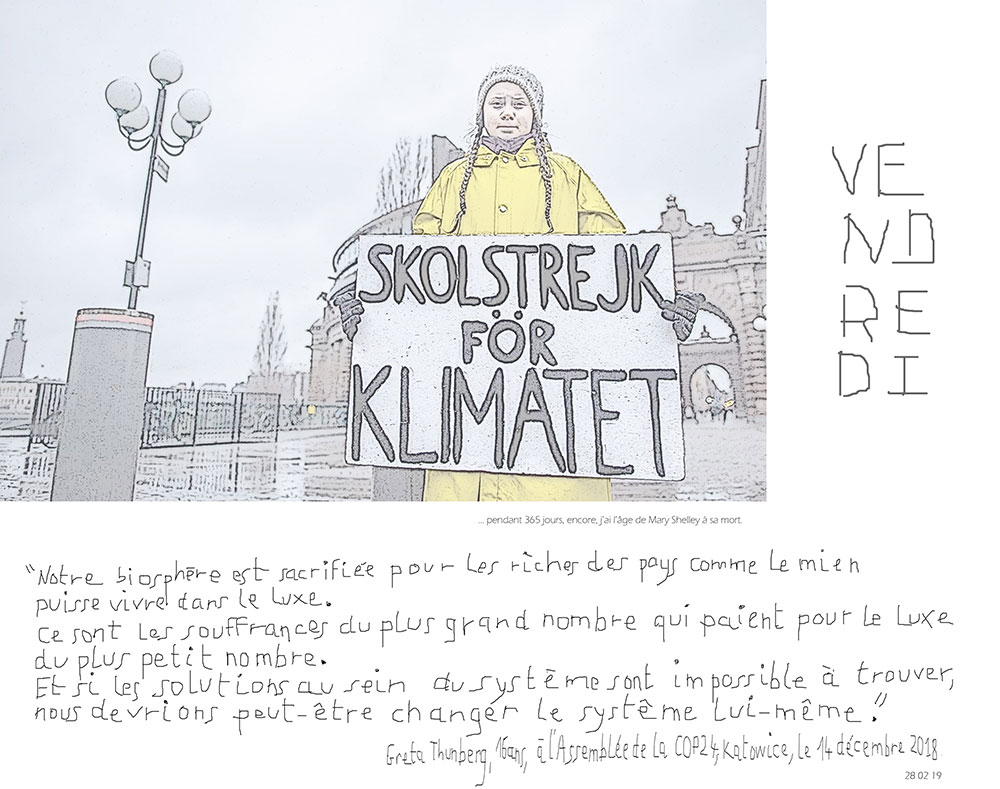 SKOLSTREJK
FÖR
KLIMATET
VE
ND
RE
DI
... pendant 365 jours, encore, j'ai l'âge de Mary Shelley à sa mort.
"Notre biosphère est sacrifiée pour les riches des pays comme le mien
puisse vivre dans le luxe.
Ce sont les souffrances du plus grand nombre qui paient pour le luxe
du plus petit nombre.
Et si les solutions au sein du système sont impossible à trouver,
nous devrions peut-être changer le système lui-même."
Greta Thunberg, 16ans, à l'Assemblée de la COP24, Katowice, le 14 décembre 2018
28 02 19